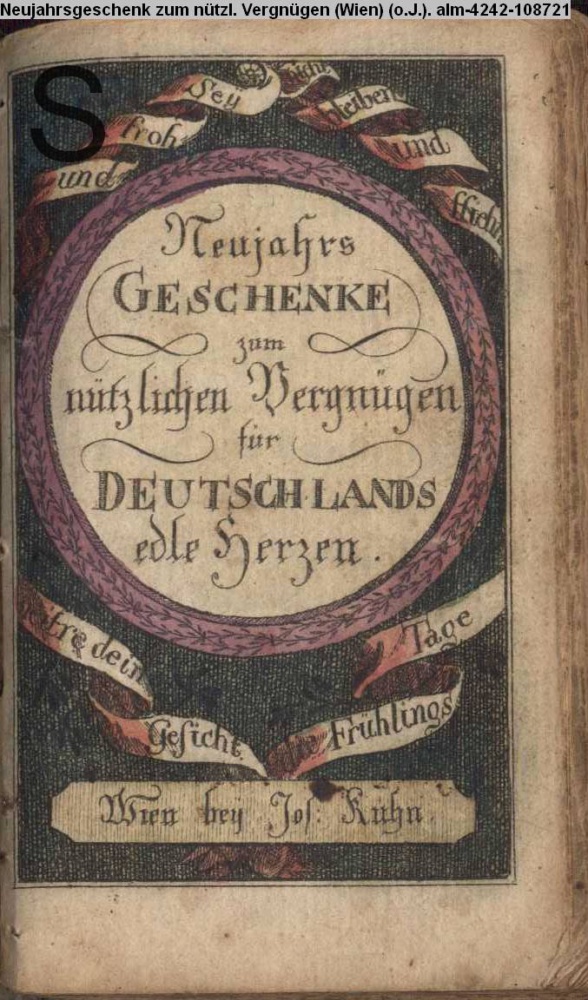 Neujahrsgeschenk zum nützl. Vergnügen (Wien) (o.J.). alm-4242-108721
S
Sey
froh
und
bleiben
und
Neujahrs
GESCHENKE
zum
nützlichen Vergnügen
für
DEUTSCHLANDS
edle Herzen.
dein
Gesicht.
Frühlings
Tage
Wien bey Jos: Kuhn.